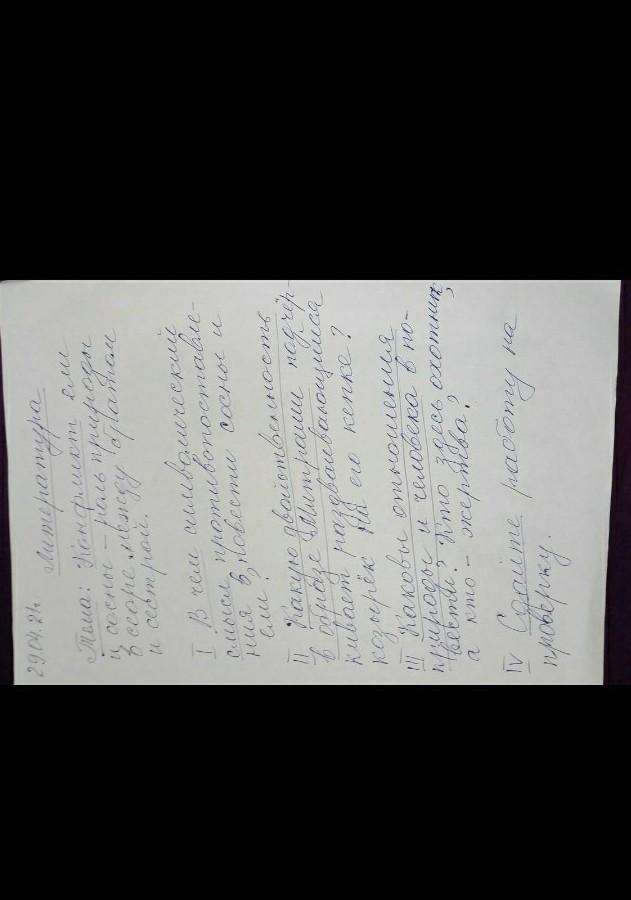 29.04.21. Литература
Тема: Конфликт ели
и сосны – роль природы
в ссоре между братом
и сестрой.
I В чем символический
смысл противопоставле-
ния в повести сосны и
ели?
II Какую двойственность
в образе Митраши подчёр-
кивает раздваивающийся
козырёк на его кепке?
III Каковы отношения
природы и человека в по-
вести? Кто здесь охотник,
а кто – жертва?
IV Сдайте работу на
проверку.